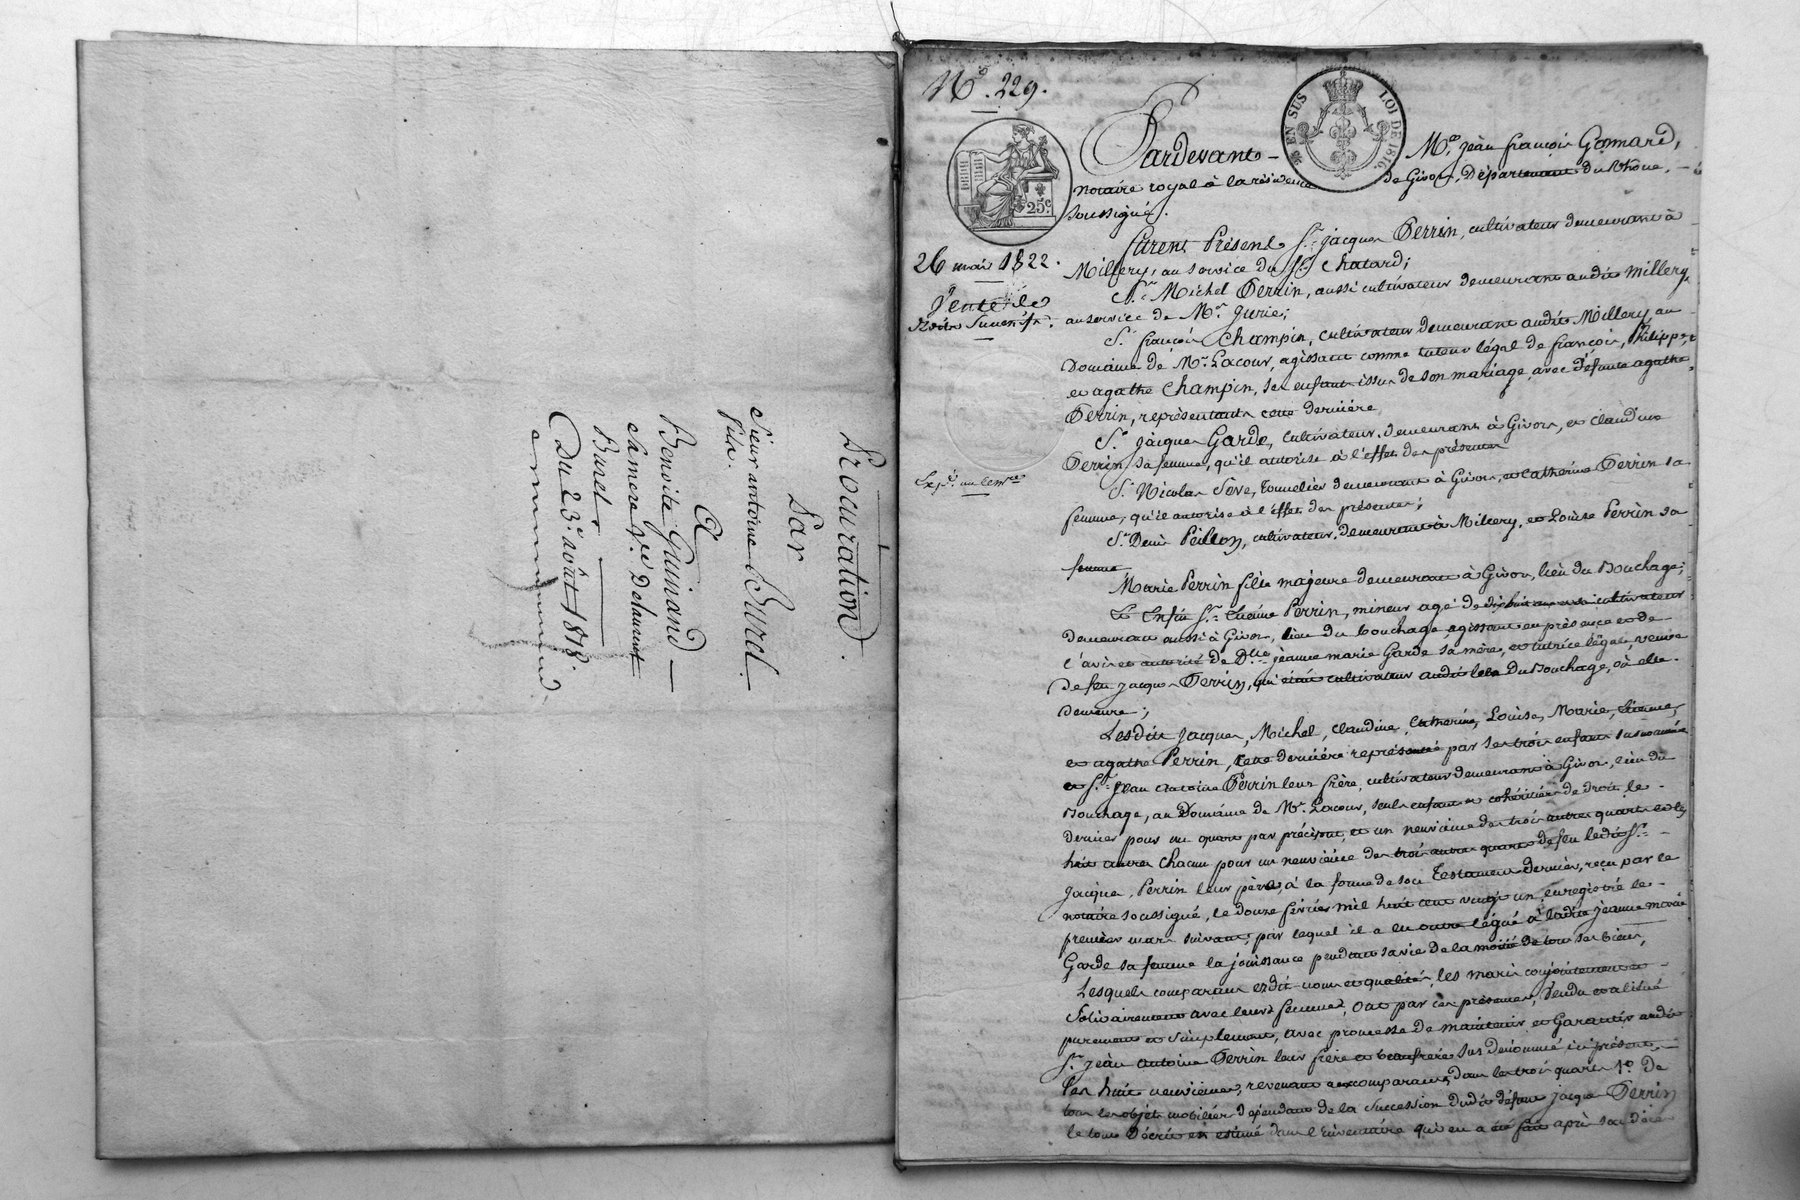 Procuration.
Par
Sieur antoine Burel
fils.
A
Benoite Guinand
sa mere Vve Delaurent
Burel.
Du 23. août 1818.
No. 229.
25c
EN SUS LOI DE 1816.
26 mai 1822.
Vente de
Droits Success.fs.
Pardevant Me. jean françois Gamard,
notaire royal à la résidence de Givors, Département du Rhône,
soussigné.
furent Présens Sr. jacques Perrin, cultivateur demeurant à
Millery, au service du Sr. Chatard;
Sr. Michel Perrin, aussi cultivateur demeurant audit Millery,
au service de Mr. Jurie;
Sr. françois Champin, cultivateur demeurant audit Millery au
Domaine de Mr. Lacour, agissant comme tuteur légal de françois, Philippe,
et agathe Champin, ses enfants issus de son mariage, avec défunte agathe
Perrin, représentants cette dernière,
Sr. jacques Garde, cultivateur, demeurant à Givors, et claudine
Perrin sa femme, qu'il autorise à l'effet des présentes
Sr. Nicolas Seve, tonnelier demeurant à Givors, et catherine Perrin sa
femme, qu'il autorise à l'effet des présentes;
Sr. Denis Peillon, cultivateur, demeurant à Millery, et Louise Perrin sa
femme
Marie Perrin fille majeure demeurant à Givors, lieu du Bouchage;
Et Enfin Sr. Etienne Perrin, mineur agé de dixhuit ans cultivateur
demeurant aussi à Givors, lieu du bouchage, agissant en présence et de
l'avis et autorité de Dlle jeanne marie Garde sa mère, et tutrice légale, veuve
de feu jacques Perrin, qui était cultivateur audit lieu Du Bouchage, où elle
demeure;
Lesdits jacques, Michel, claudine, Catherine, Louise, Marie, Etienne,
et agathe Perrin, cette dernière représentée par ses trois enfants susnommés
et Sr. Jean Antoine Perrin leur frère, cultivateur demeurant à Givors, lieu du
Bouchage, au Domaine de Mr. Lacour, seuls enfants et cohéritiers de droit, le
dernier pour un quart par préciput, et un neuvième des trois autres quarts et les
huit autres chacun pour un neuvième des trois autres quarts de feu ledit Sr.
jacques Perrin leur père, à la forme de son Testament dernier, reçu par le
notaire soussigné, le douze février mil huit cent vingt un, enregistré le
premier mars suivant, par lequel il a en outre légué à ladite jeanne marie
Garde sa femme la jouissance pendant sa vie de la moitié de tous ses biens,
Lesquels comparans esdits noms et qualités, les maris conjointement et
solidairement avec leurs femmes, ont par ces présentes, vendu et aliéné
purement et simplement, avec promesse de maintenir et Garantir audit
Sr. jean antoine Perrin leur frère et beaufrère sus dénommé ici présent,
Les huit neuvièmes, revenant aux comparans, dans les trois quarts 1o. de
tous les objets mobiliers dépendants de la succession dudit défunt jacques Perrin
le tout décrit et estimé dans l'inventaire qui en a été fait après son décès